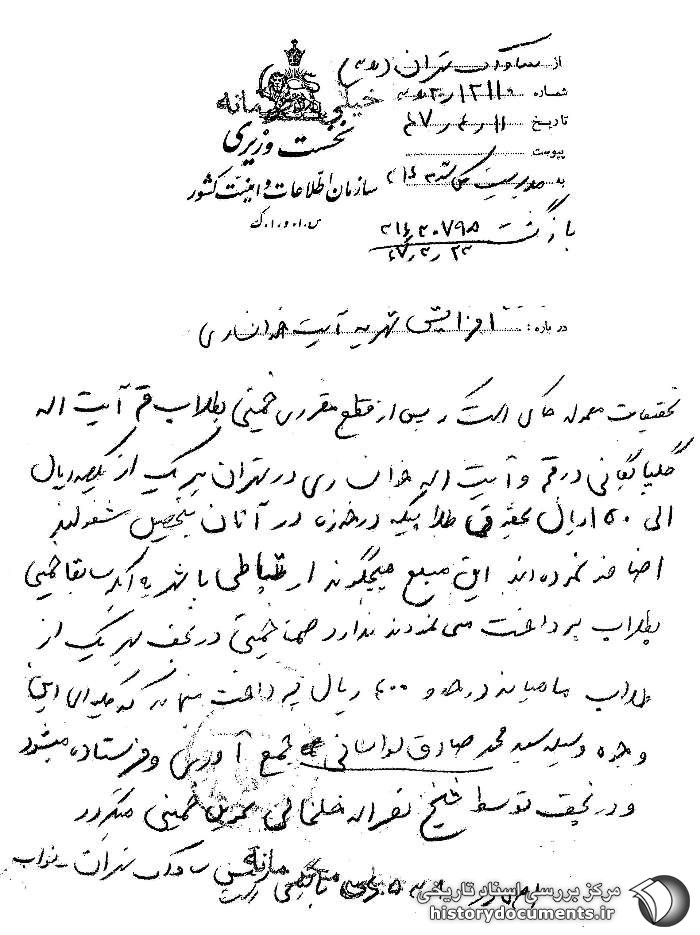 از ساواک تهران (۲۰ﻫ۳)
شماره ۱۲۱۱۰/۲۰ﻫ۳
خیلی محرمانه
تاریخ ۴۷/۴/۱۱
نخست وزیری
پیوست
به مدیریت کل سوم ۳۱۶
سازمان اطلاعات و امنیت کشور
س.ا.و.ا.ک
بازگشت ۳۱۶/۲۰۷۹۵
۴۷/۳/۲۳
درباره: افزایش شهریه آیت اله خوانساری
تحقیقات معموله حاکی است که پس از قطع مقرری خمینی بطلاب قم آیت اله
گلپایگانی در قم و آیت اله خوانساری در تهران هر یک از یکصد ریال
الی ۱۵۰ ریال بحقوق طلابیکه در حوزه درس آنان بتحصیل مشغولند
اضافه نموده اند این مبلغ هیچگونه ارتباطی با شهریه ایکه سابقا خمینی
بطلاب پرداخت می نمودند ندارد ضمنا خمینی در نجف بهر یک از
طلاب ماهیانه در حدود ۶۰۰ ریال پرداخت مینماید که کلیه این
وجوه وسیله سید محمد صادق لواسانی جمع آوری و فرستاده میشود
و در نجف توسط شیخ نصراله خلخالی تحویل خمینی میگردد
رئیس ساواک تهران - نواب
خیلی محرمانه
مرکز بررسی اسناد تاریخی
historydocuments.ir